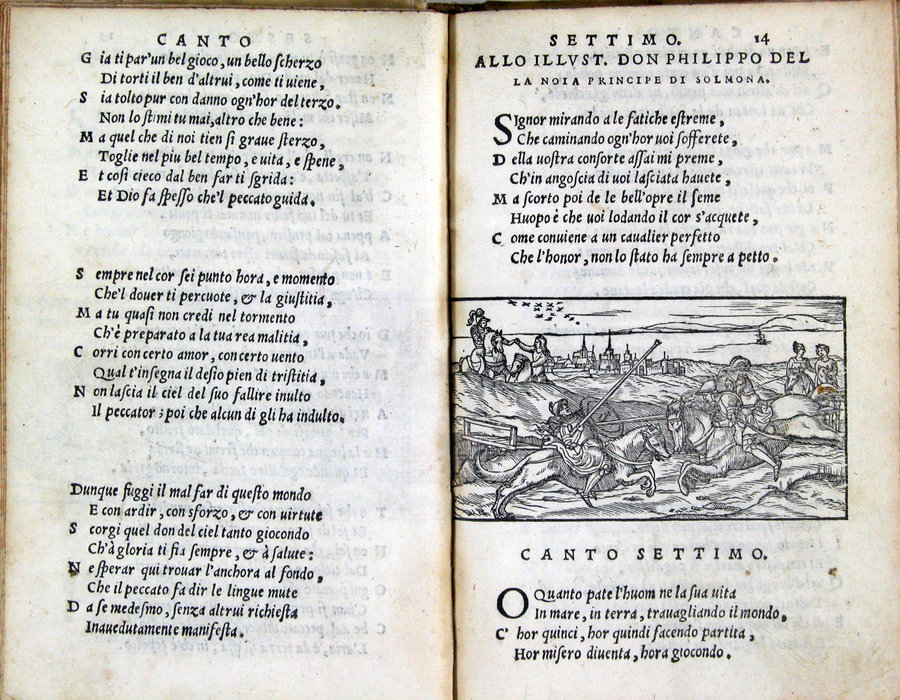 CANTO
G ia ti par'un bel gioco, un bello scherzo
Di torti il ben d'altrui, come ti uiene,
S ia tolto pur con danno ogn'hor del terzo,
Non lo stimi tu mai, altro che bene:
M a quel che di noi tien si graue sferzo,
Toglie nel piu bel tempo, e uita, e spene,
E t così cieco dal ben far ti sgrida:
Et Dio fa spesso che'l peccato guida.
S empre nel cor sei punto hora, e momento
Che'l douer ti percuote, & la giustitia,
M a tu quasi non credi nel tormento
Ch'è preparato a la tua rea malitia,
C orri con certo amor, con certo uento
Qual t'insegna il desio pien di tristitia,
N on lascia il ciel del suo fallire inulto
Il peccator; poi che alcun di gli ha indulto.
Dunque fuggi il mal far di questo mondo
E con ardir, con sforzo, & con uirtute
S corgi quel don del ciel tanto giocondo
Ch'à gloria ti fia sempre, & à salute:
N e sperar qui trouar l'anchora al fondo,
Che il peccato fa dir le lingue mute
D a se medesmo, senza altrui richiesta
Inauedutamente manifesta.
SETTIMO. 14
ALLO ILLVST. DON PHILIPPO DEL
LA NOIA PRINCIPE DI SOLMONA.
SIgnor mirando a le fatiche estreme,
Che caminando ogn'hor uoi sofferete,
D ella uostra consorte assai mi preme,
Ch'in angoscia di uoi lasciata hauete,
M a scorto poi de le bell'opre il seme
Huopo è che uoi lodando il cor s'acquete,
C ome conuiene a un caualier perfetto
Che l'honor, non lo stato ha sempre a petto.
CANTO SETTIMO.
O Quanto pate l'huom ne la sua uita
In mare, in terra, trauagliando il mondo,
C' hor quinci, hor quindi facendo partita,
Hor misero diuenta, hora giocondo.